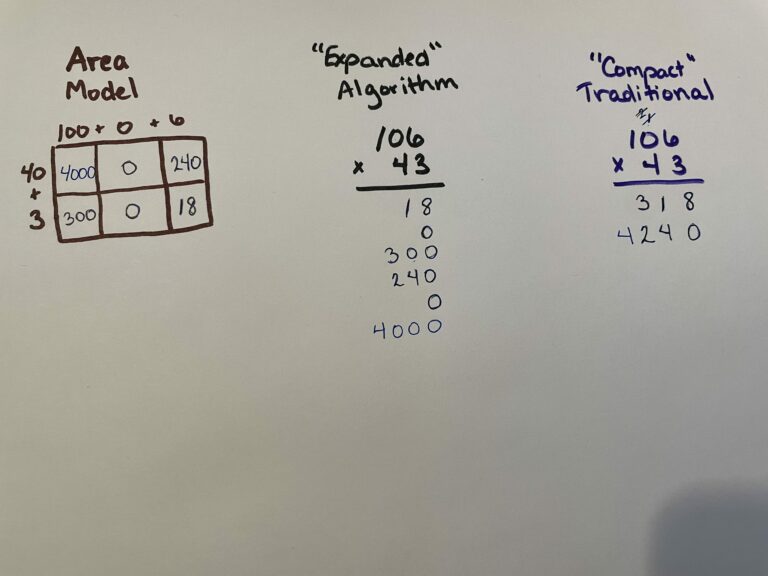 Area
Model
100 + 0 + 6
40 4000 0 240
+
3 300 0 18
"Expanded"
Algorithm
106
x 43
18
0
300
240
0
4000
"Compact"
Traditional
106
x 43
318
4240